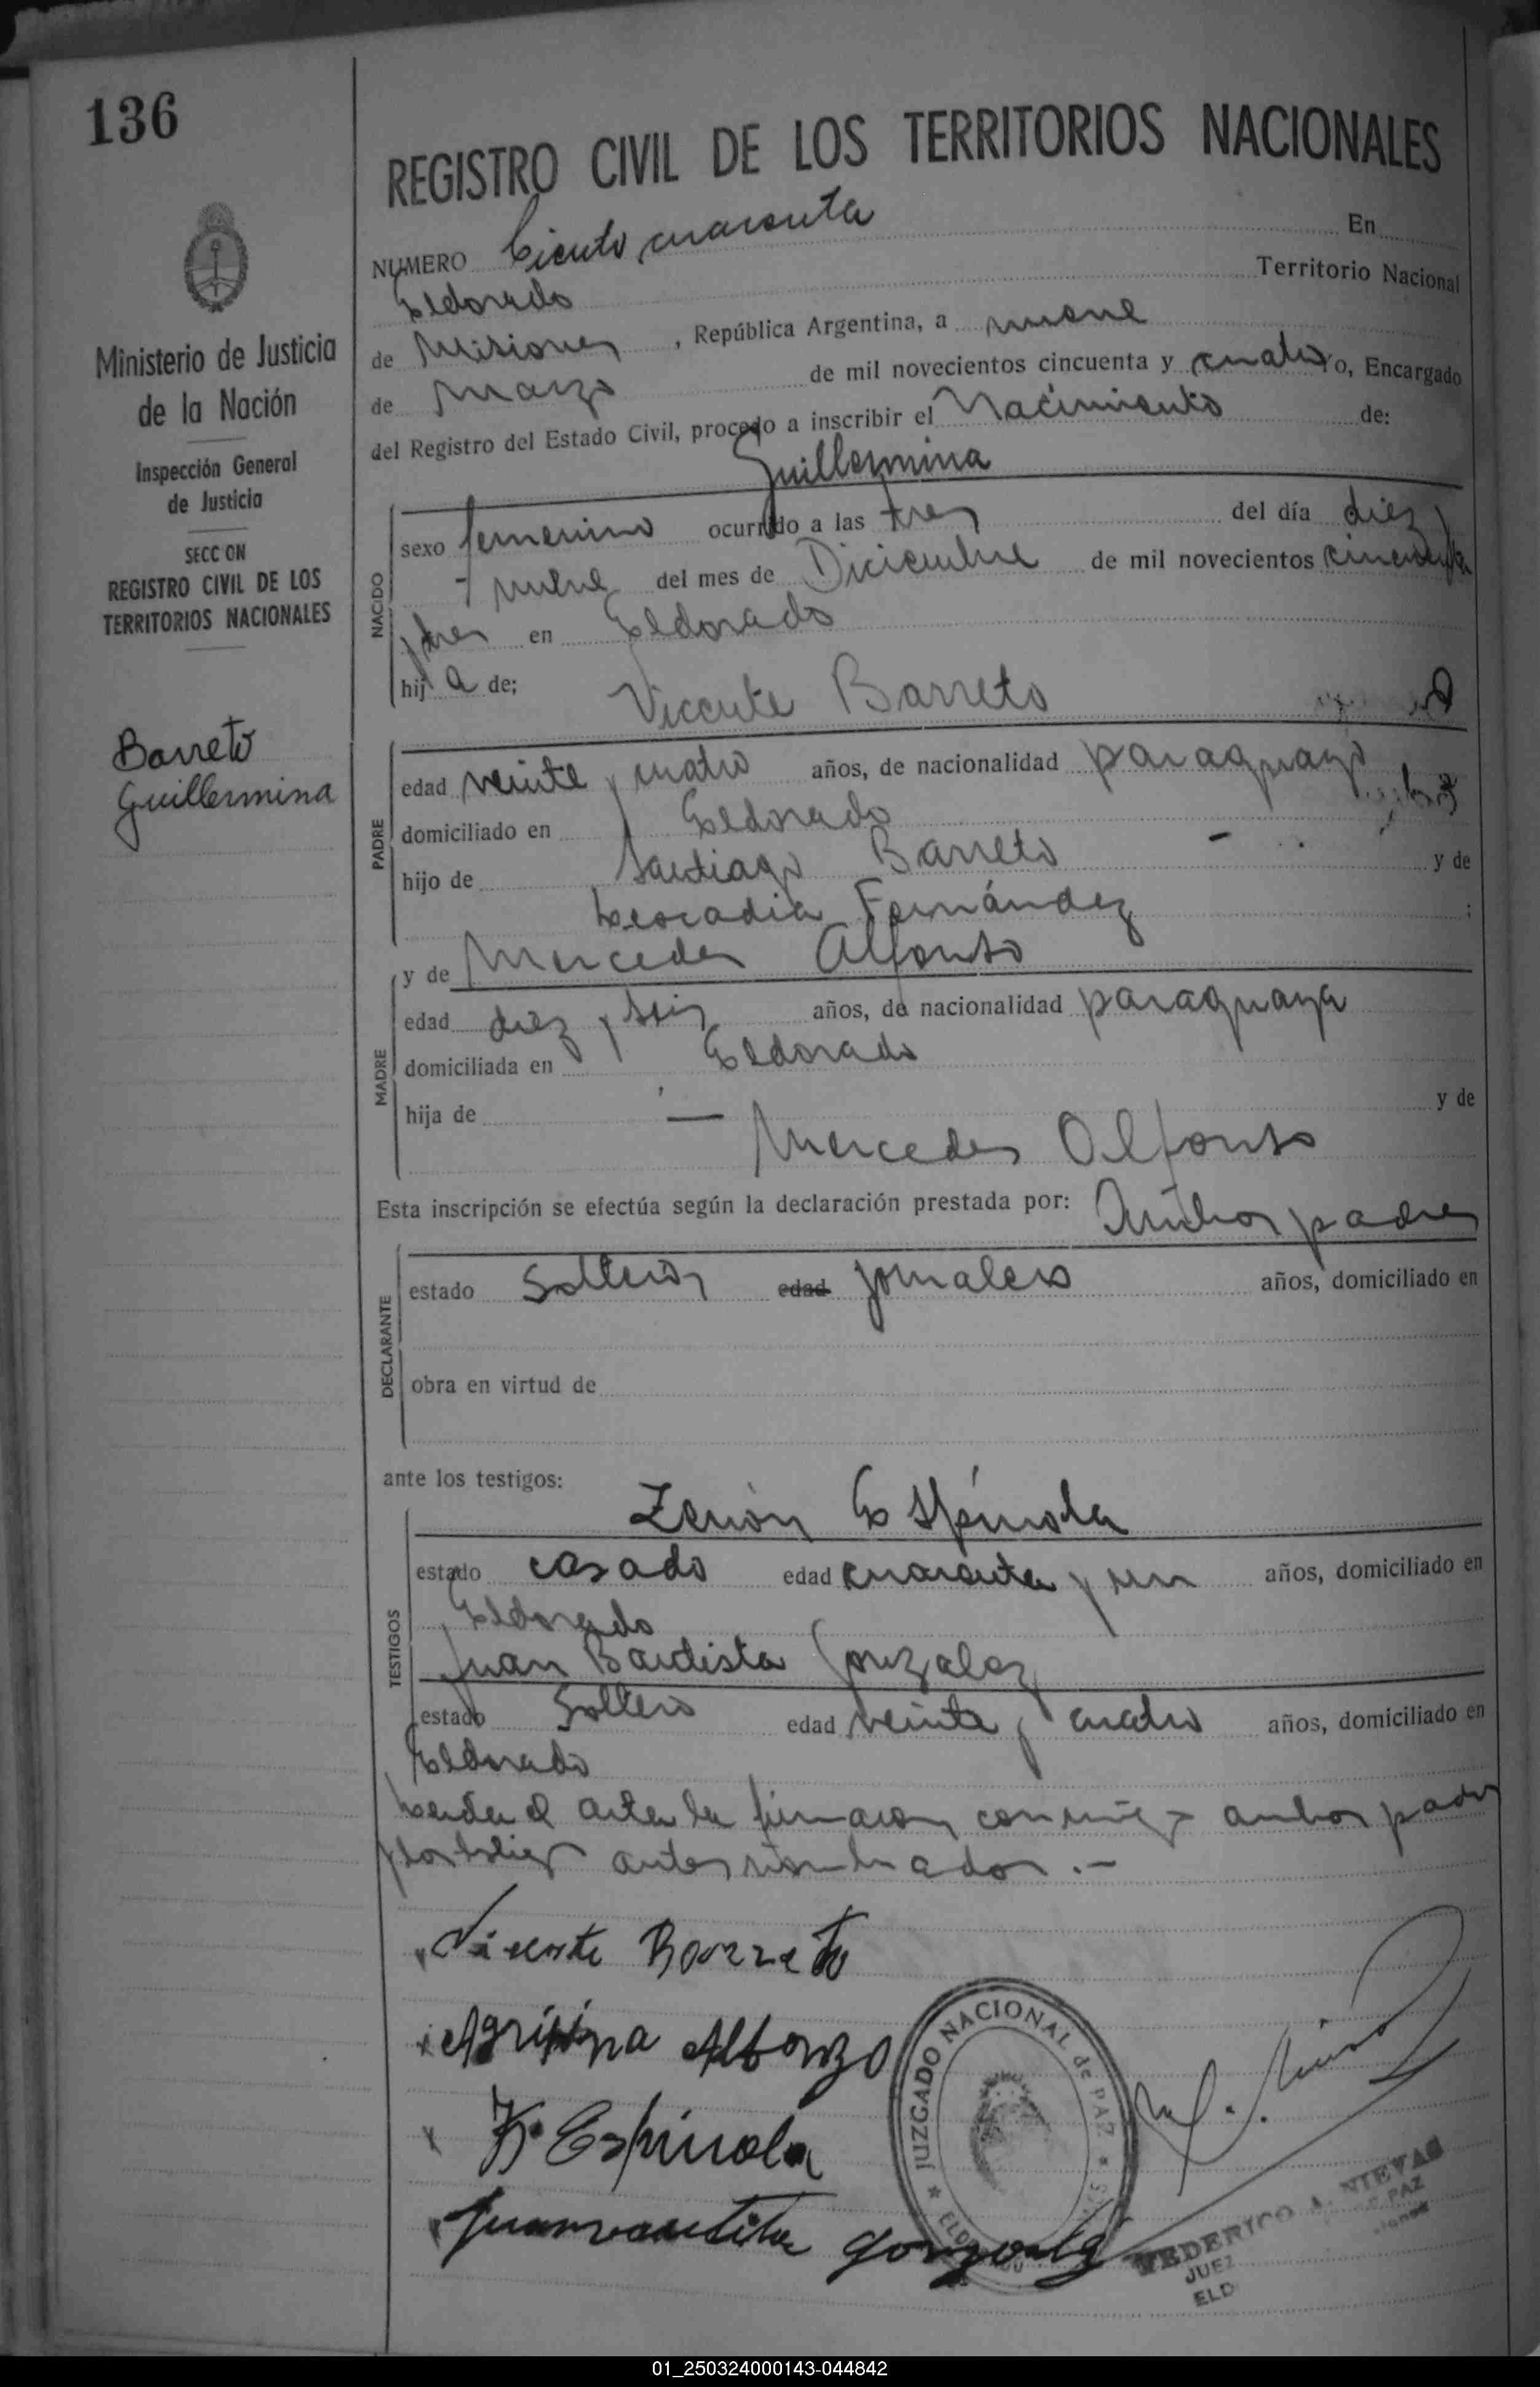 136
Ministerio de Justicia
de la Nación
Inspección General
de Justicia
SECC ON
REGISTRO CIVIL DE LOS
TERRITORIOS NACIONALES
Barreto
Guillermina
REGISTRO CIVIL DE LOS TERRITORIOS NACIONALES
NUMERO Ciento cuarenta En
Eldorado Territorio Nacional
de Misiones, República Argentina, a nueve
de Marzo de mil novecientos cincuenta y cuatro, Encargado
del Registro del Estado Civil, procedo a inscribir el Nacimiento de:
Guillermina
NACIDO
sexo femenino ocurrido a las tres del día diez y
nueve del mes de Diciembre de mil novecientos cincuenta
y tres en Eldorado
hija de;
Vicente Barreto
PADRE
edad veinte y cuatro años, de nacionalidad paraguayo
domiciliado en Eldorado
hijo de Santiago Barreto y de
Leocadia Fernández ;
y de Mercedes Alfonso
MADRE
edad diez y seis años, de nacionalidad paraguaya
domiciliada en Eldorado
hija de — y de
Mercedes Alfonso
Esta inscripción se efectúa según la declaración prestada por: Ambos padres
DECLARANTE
estado Solteros edad jornalero años, domiciliado en
obra en virtud de
ante los testigos:
Zenón Espínola
TESTIGOS
estado casado edad cuarenta y un años, domiciliado en
Eldorado
Juan Bautista Gonzalez
estado Soltero edad veinte y cuatro años, domiciliado en
Eldorado
Leida el acta la firmaron conmigo ambos padres
y los testigos antes nombrados .-
Vicente Barreto
Alfonzo
Espinola
JUZGADO NACIONAL de PAZ
FEDERICO A. NIEVAS
JUEZ PAZ
ELD
01_250324000143-044842